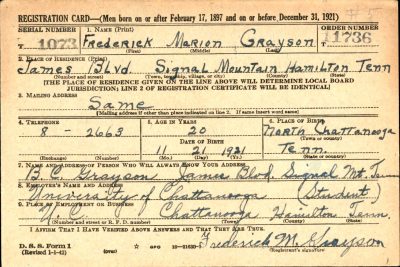 REGISTRATION CARD—(Men born on or after February 17, 1897 and on or before December 31, 1921)
SERIAL NUMBER 1. NAME (Print) ORDER NUMBER
T 1073 Frederick Marion Grayson 11736
(First) (Middle) (Last)
2. PLACE OF RESIDENCE (Print)
James Blvd. Signal Mountain Hamilton Tenn
(Number and street) (Town, township, village, or city) (County) (State)
[THE PLACE OF RESIDENCE GIVEN ON THE LINE ABOVE WILL DETERMINE LOCAL BOARD
JURISDICTION; LINE 2 OF REGISTRATION CERTIFICATE WILL BE IDENTICAL]
3. MAILING ADDRESS
Same
[Mailing address if other than place indicated on line 2. If same insert word same]
4. TELEPHONE 5. AGE IN YEARS 6. PLACE OF BIRTH
8-2663 20 North Chattanooga
DATE OF BIRTH (Town or county)
11 21 1921 Tenn.
(Exchange) (Number) (Mo.) (Day) (Yr.) (State or country)
7. NAME AND ADDRESS OF PERSON WHO WILL ALWAYS KNOW YOUR ADDRESS
B. C. Grayson James Blvd. Signal Mt. Tenn
8. EMPLOYER'S NAME AND ADDRESS
University of Chattanooga (Student)
9. PLACE OF EMPLOYMENT OR BUSINESS
U. C. Chattanooga Hamilton Tenn.
(Number and street or R. F. D. number) (Town) (County) (State)
I AFFIRM THAT I HAVE VERIFIED ABOVE ANSWERS AND THAT THEY ARE TRUE.
D. S. S. Form 1 GPO Frederick M. Grayson
(Revised 1-1-42) (Registrant's signature)